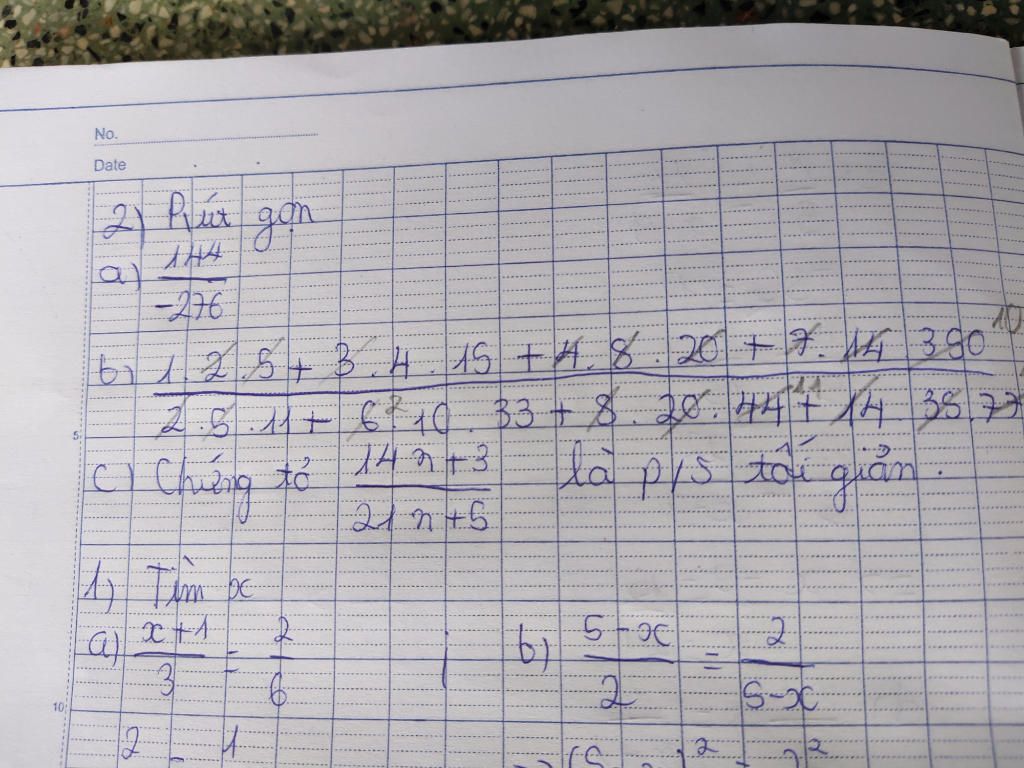 No.
Date
2) Rút gọn
a) 144/-276
b) 1.2.5 + 3.4.15 + 4.8.20 + 7.14 350 10
2.5.11 + 6 2.10.33 + 8.20.44 11 + 14.35.77
5
c) Chứng tỏ 14n+3/21n+5 là p/s tối giản.
1) Tìm x
a) x+1/3 = 2/6 ; b) 5-x/2 = 2/5-x
10